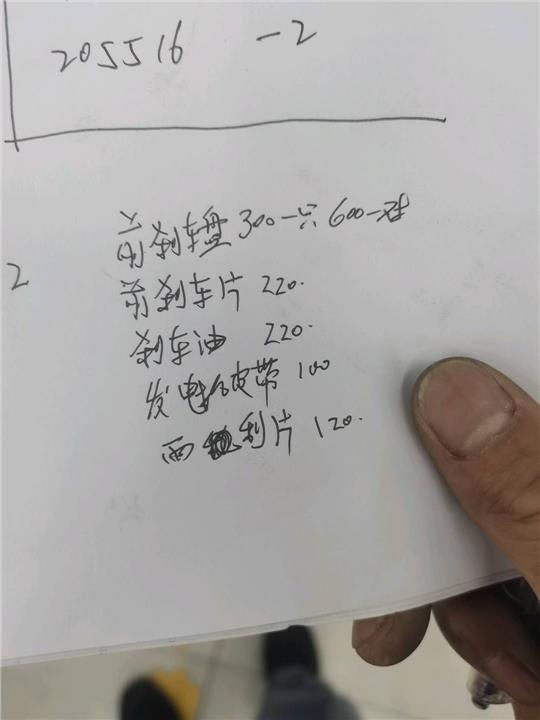 205516 -2
2
前刹车盘300一只600一对
前刹车片 220.
刹车油 220.
发电机皮带 100
雨刮片 120.